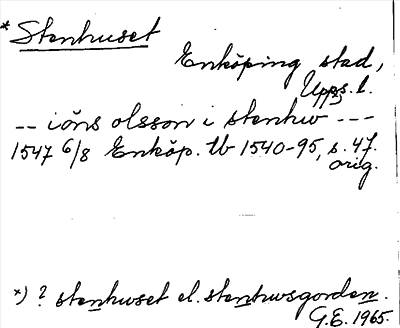 * Stenhuset
Enköping stad,
Upps. l.
-- iöns olsson i stenhw ---
1547 6/8 Enköp. tb 1540-95, s. 47.
orig.
*) ? stenhuset el. stenhusgorden.
G.E. 1965.